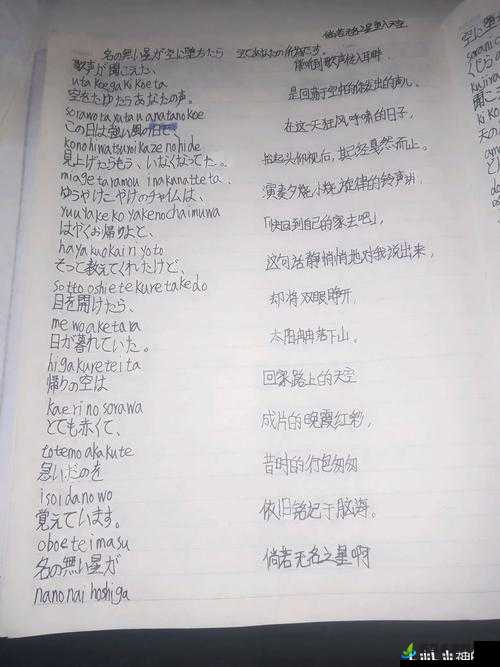 倘若无名之星坠入天空
名の無い星が空に堕ちたら
歌声が聞こえた、
utakoegakikoeta
空をたゆたうあなたの声。
是回荡于空中的你发出的声儿。
sorawotayutauanatanokoe
この日は強い風の日で、
在这天狂风呼啸的日子，
konohiwatsumikazenohide
見上げたらもう、いなくなってた。
抬起头仰视后，其已经戛然而止。
miagetaramou inakanatteta.
ゆうやけこやけのチャイムは、
演奏夕烧小烧旋律的铃声讲，
yuuyakekoyakenochaimuwa
はやくお帰りよと、
「快回到自己的家去吧」，
hayakuokainyoto
そっと教えてくれたけど、
这句话静悄悄地对我流出来，
sottooshietekuretakedo
目を開けたら、
却将双眼睁开，
mewoaketara
日が暮れていた。
太阳冉冉落下山。
higakureteita
帰りの空は
回家路上的天空
kaerinosorawa
とても赤くて、
成片的晚霞红彩，
totemoakakute
急いだのを
昔时的行色匆匆
isoidanowo
覚えています。
依旧铭记于脑海。
oboeteimasu
名の無い星が
倘若无名之星啊
nanonaihoshiga